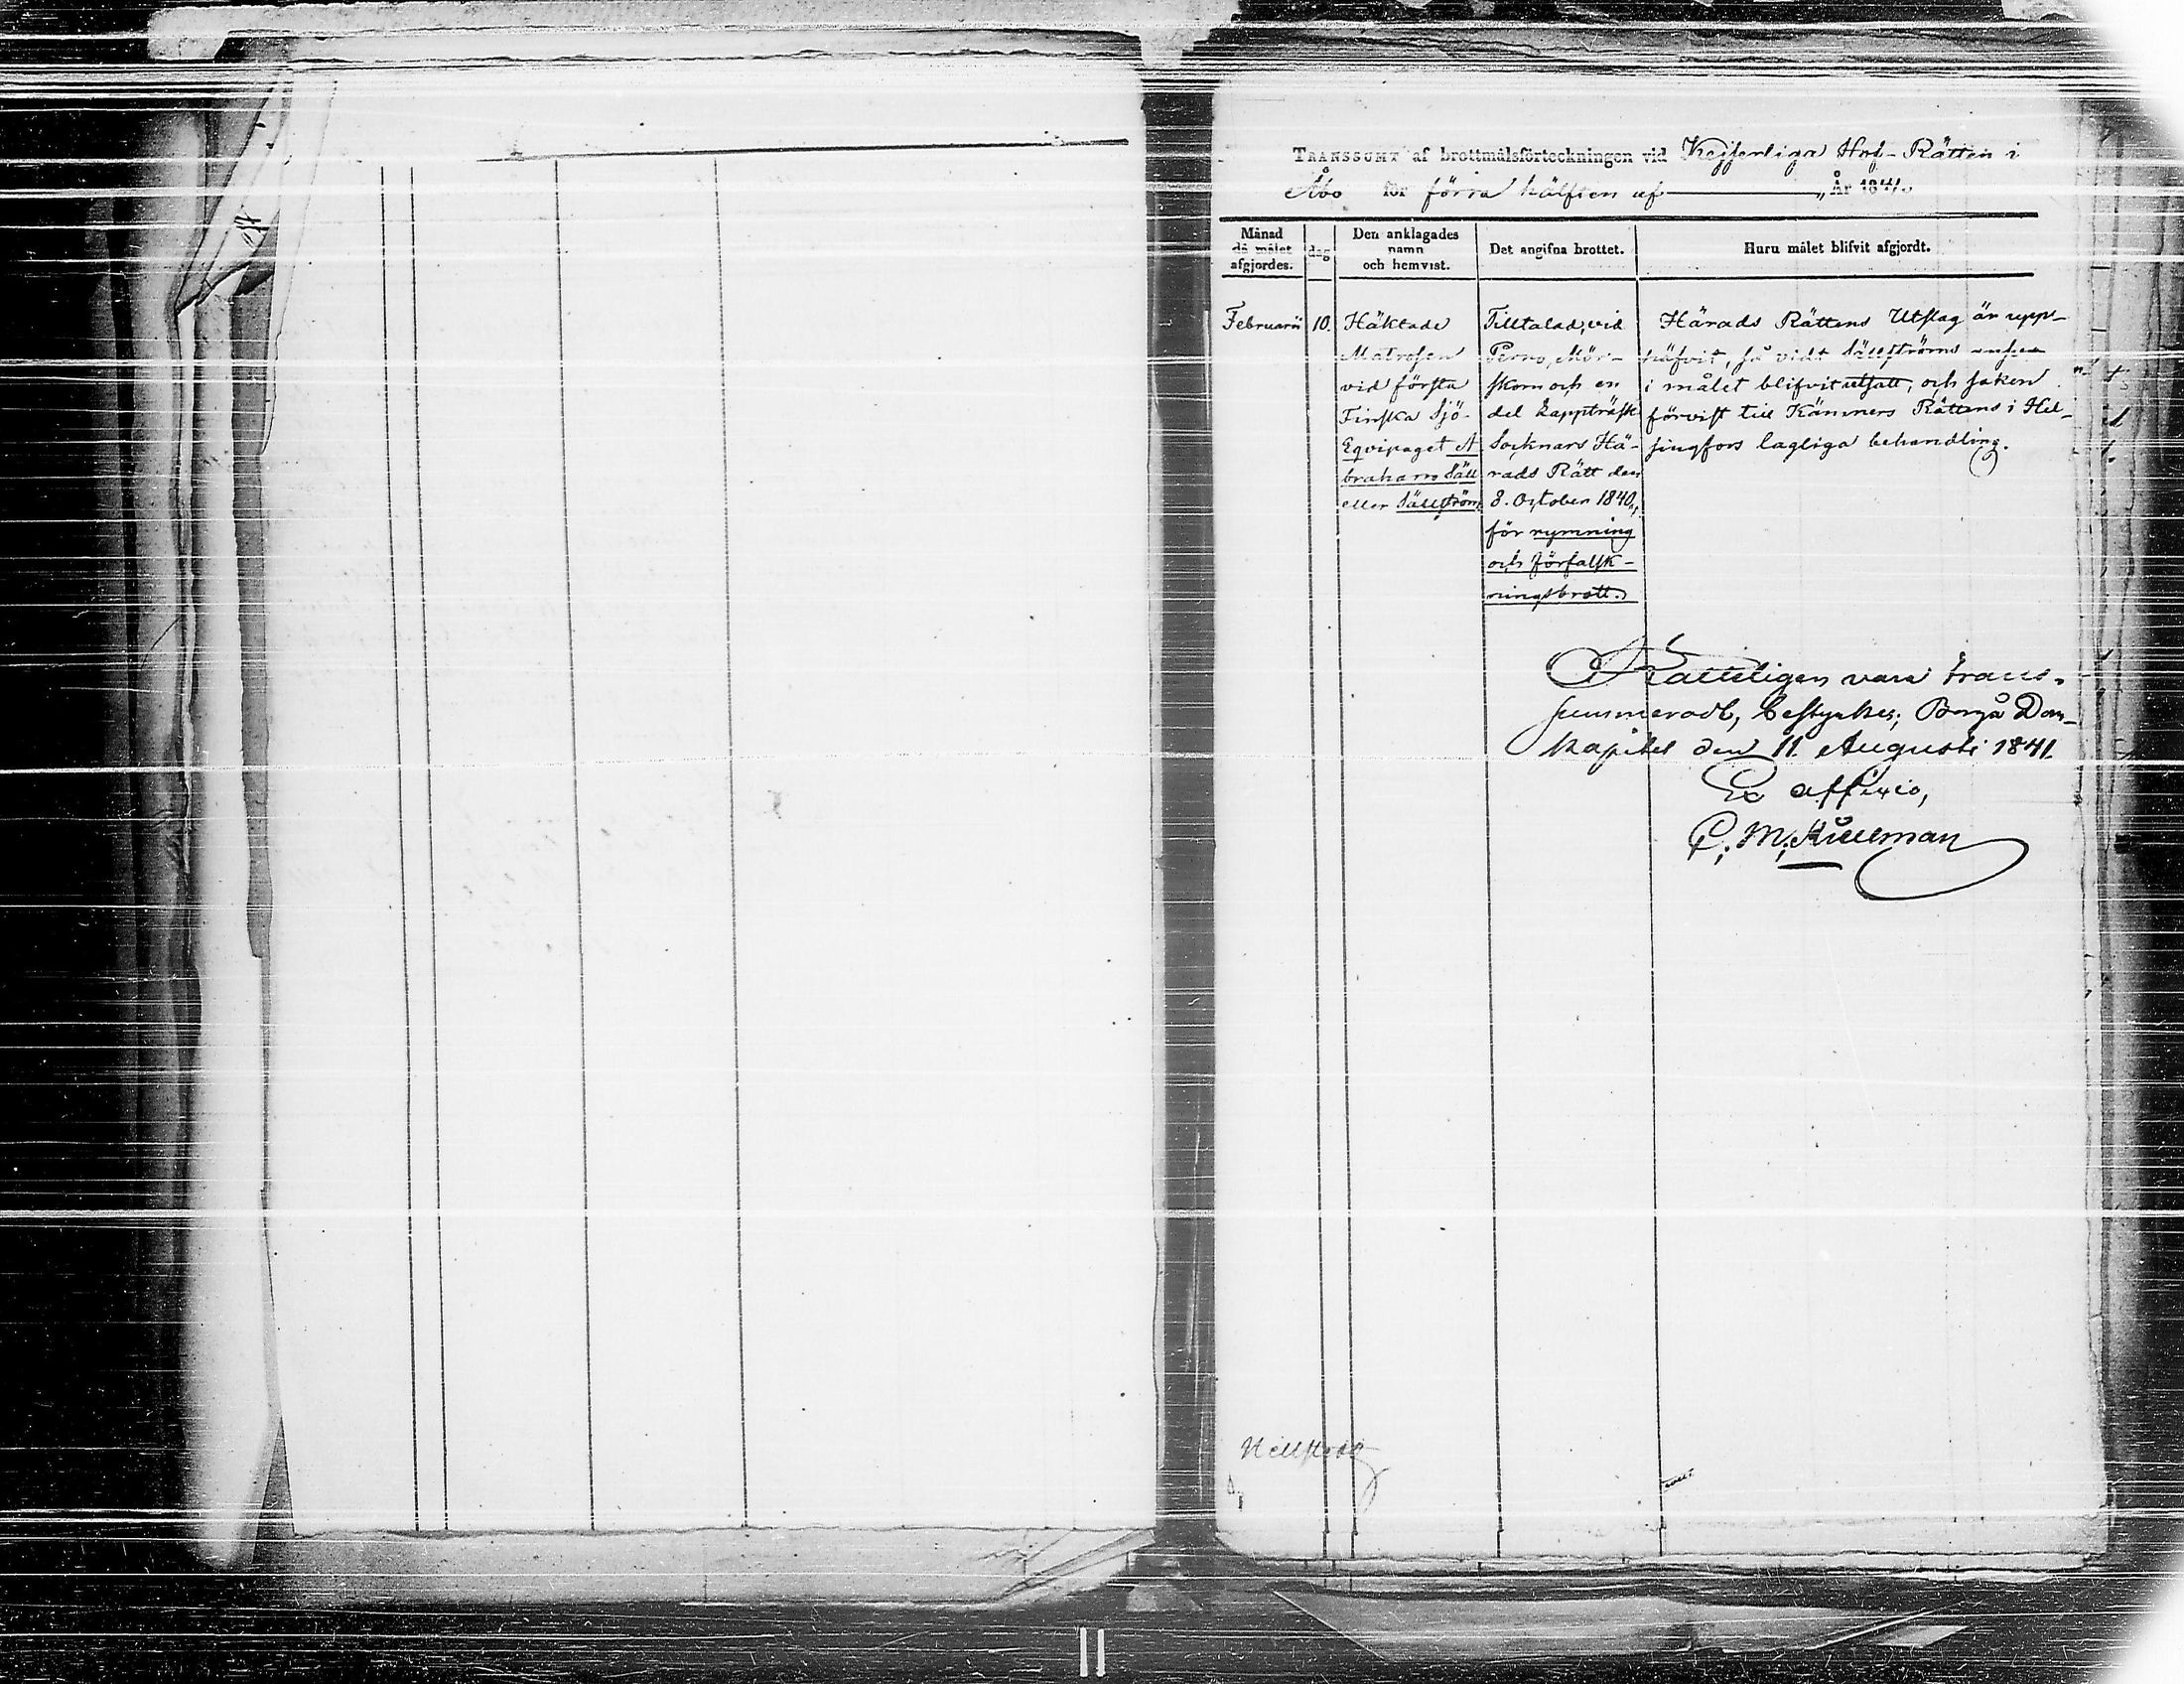 TRANSSUMT af brottmålsförteckningen vid Kejserliga Hof-Rätten i
Åbo för förra hälften af „År 1841.
Månad då målet afgjordes.
dag
Den anklagades namn och hemvist.
Det angifna brottet.
Huru målet blifvit afgjordt.
Februarii
10.
Häktade
Matrosen
vid första
Finska Sjö-
Eqvipaget A
braham Säll
eller Sällström
Tilltalad, vid
Perno, Mör-
skom och en
del Lappträsk
Socknars Hä-
rads Rätt den
8. October 1840,
för rymning
och förfalsk-
ningsbrott.
Härads Rättens Utslag är upp-
häfvit, så vidt Sällströms ansvar
i målet blifvit utsatt, och saken
förvist till Kämners Rättens i Hel-
singfors lagliga behandling.
Rätteligen vara trans-
summeradt, bestyrker; Borgå Dom-
kapitel den 11 Augusti 1841
Ex officio,